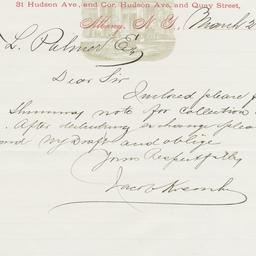 31 Hudson Ave., and Cor. Hudson Ave., and Quay Street,
Albany, N. Y., March 2
L. Palmer Esq
Dear Sir
Inclosed please f
Shumway note for collection
. After deducting exchange plea
nd N.Y. Draft and oblige
Yours Respectfully
Jacob